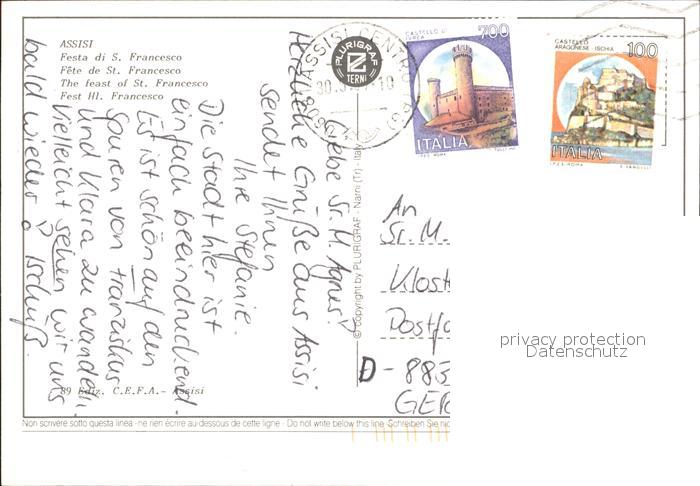 ASSISI
Festa di S. Francesco
Fête de St. Francesco
The feast of St. Francesco
Fest Hl. Francesco
PLURIGRAF
TERNI
ASSISI CENTRO
CASTELLO DI
IVREA
700
ITALIA
I.P.Z.S. ROMA
CASTELLO
ARAGONESE - ISCHIA
100
ITALIA
I.P.Z.S. ROMA
Liebe Sr. M. Agnes!
Herzliche Grüße aus Assisi
sendet Ihnen
Ihre Stefanie.
Die Stadt hier ist
einfach beeindruckend.
Es ist schön auf den
Spuren von Franziskus
und Klara zu wandeln.
Vielleicht sehen wir uns
bald wieder? Tschüß.
© copyright by PLURIGRAF - Narni (Tr) - Italy
An
Sr. M.
Klost
Postfa
D - 883
GER
privacy protection
Datenschutz
89 Ediz. C.E.F.A.- Assisi
Non scrivere sotto questa linea - ne rien écrire au-dessous de cette ligne - Do not write below this line - Schreiben Sie nic